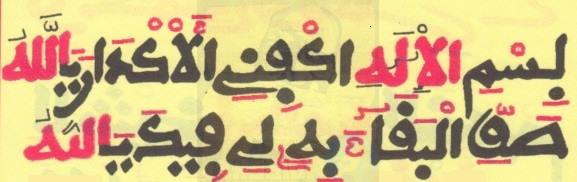 بسم الإله اكفني الأكدار يا الله
صف البقاء به لي فيك يا الله